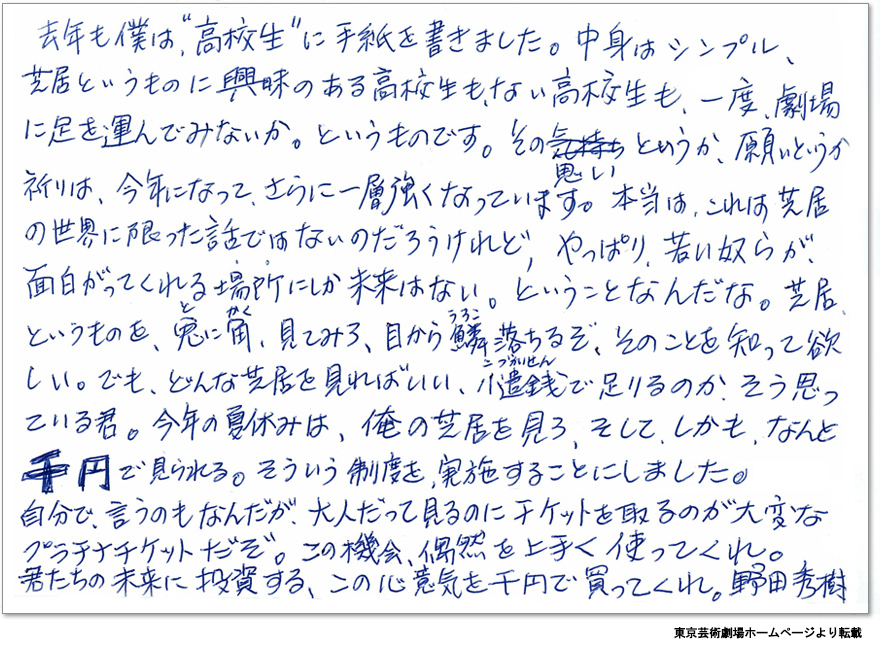 去年も僕は、“高校生”に手紙を書きました。中身はシンプル、
芝居というものに興味のある高校生も、ない高校生も、一度、劇場
に足を運んでみないか。というものです。その気持ち思いというか、願いというか
祈りは、今年になって、さらに一層強くなっています。本当は、これは芝居
の世界に限った話ではないのだろうけれど、やっぱり、若い奴らが、
面白がってくれる場所にしか未来はない。ということなんだな。芝居、
というものを、兎に角、見てみろ、目から鱗落ちるぞ、そのことを知って欲
とかくうろこ
しい。でも、どんな芝居を見ればいい、小遣銭で足りるのか、そう思っ
こづかいせん
ている君。今年の夏休みは、俺の芝居を見ろ、そして、しかも、なんと
千円で見られる。そういう制度を、実施することにしました。
自分で、言うのもなんだが、大人だって見るのにチケットを取るのが大変な
プラチナチケットだぞ。この機会、偶然を上手く使ってくれ。
君たちの未来に投資する、この心意気を千円で買ってくれ。野田秀樹
東京芸術劇場ホームページより転載